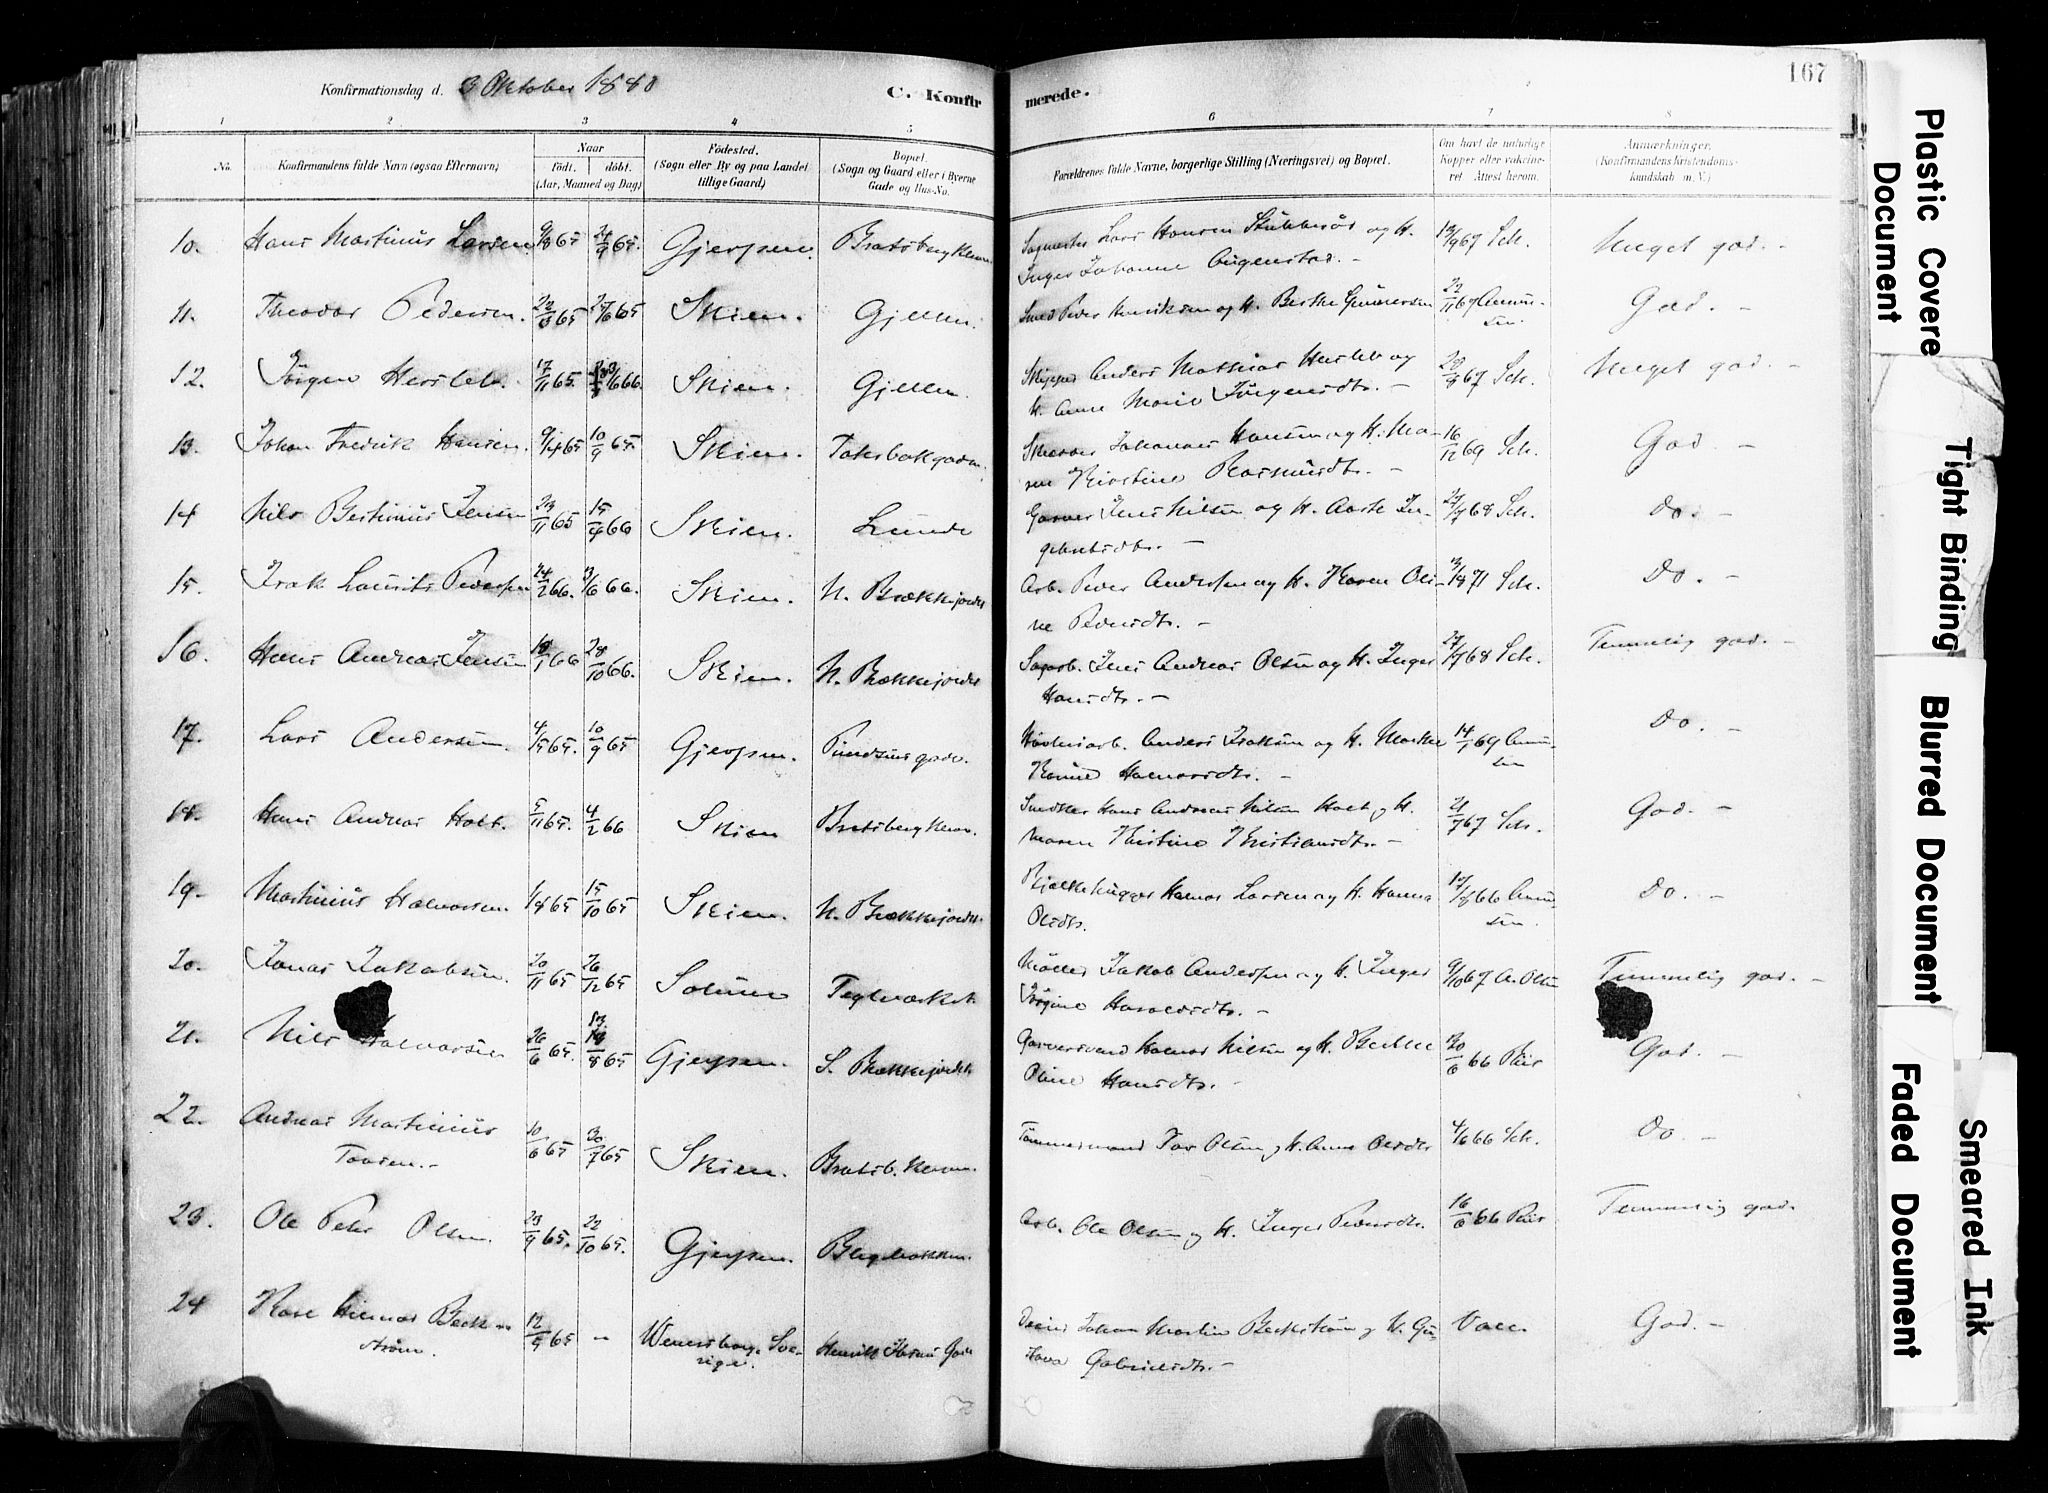 Konfirmationsdag d. 3 Oktober 1880
C. Konfirmerede.
167
1 2 3 4 5 6 7 8
No. Konfirmandens fulde Navn (ogsaa Efternavn) Naar født. døbt. (Aar, Maaned og Dag) Fødested. (Sogn eller By og paa Landet tillige Gaard) Bopæl. (Sogn og Gaard eller i Byerne Gade og Hus-No. Forældrenes fulde Navne, borgerlige Stilling (Næringsvei) og Bopæl. Om havt de naturlige Kopper eller vaccineret. Attest herom. Anmærkninger. (Konfirmandens Kristendomskundskab m. V.)
10. Hans Martinius Larsen 9/8 65 24/9 65. Gjerpen. Bratsbergkleven. Sagmester Lars Hansen Stubberød og H. 13/9 67 Sch. Meget god. -
Inger Johanne Augenstad. -
11. Theodor Pedersen. 22/3 65 25/6 65 Skien. Gjelten. Smed Peder Henriksen og H. Berthe Gundersen 22/11 67 Amundsen. God. -
12. Jörgen Hersleb. 17/11 65. 66. Skien. Gjelten. Skipper Anders Mathias Hersleb og 20/8 67 Sch. Meget god. -
H. Anne Marie Jörgensdtr. -
13. Johan Fredrik Hansen. 9/4 65 10/9 65. Skien. Johannes Hansen og H. Ma- 16/12 69 Sch. God. -
ren Kirstine Rasmusdtr. -
14 Nils Bertinius Jensen 23/11 65 15/4 66 Skien. Lunde Garver Jens Nilsen og H. Aaste In- 27/7 68 Sch. Do. -
gebretsdtr. -
15. Isak Laurits Pedersen 24/2 66. 3/6 66. Skien. N. Brækkejordet Arb. Peder Andersen og H. Karen Oli- 13/8 71 Sch. Do. -
ne Pedersdtr. -
16. Hans Andreas Jensen 18/1 66 28/10 66. Skien. N. Brækkejordet Sagarb. Jens Andreas Olsen og H. Inger 27/7 68 Sch. Temmelig god. -
Hansdtr. -
17. Lars Andersen. 4/5 65. 10/9 65 Gjerpen. Anders Isaksen og H. Marthe 14/1 69 Amundsen Do. -
Karine Halvorsdtr. -
18. Hans Andreas Holt. 5/11 65. 4/2 66 Skien Bratsbergkleven. Snedker Hans Andreas Nilsen Holt og H. 21/7 67 Sch. God. -
Maren Kirstine Kristiansdtr. -
19. Martinius Halvorsen. 1/4 65 15/10 65 Skien. N. Brækkejordet. Bjælkehugger Halvor Larsen og H. Hanna 17/8 66 Amundsen. Do. -
Olsdtr.
20. Jonas Jakobsen. 20/11 65 26/12 65 Solum Teglværket Møller Jakob Andersen og H. Inger 9/10 67 A. Olsen Temmelig god. -
Jörgine Haraldsdtr. -
21. Nils Halvorsen 26/6 65. 65 Gjerpen. S. Brækkejordet Garversvend Halvor Nilsen og H. Berthe 66 God. -
Oline Hansdtr. -
22. Andreas Martinius 10/6 65 30/7 65 Skien. Bratsb. kleven. Tömmermand Tor Olsen og H. Anne Olsdtr 4/6 66 Sch. Do. -
Torsen. -
23. Ole Peter Olsen. 23/9 65. 22/10 65. Gjerpen. Arb. Ole Olsen og H. Inger Pedersdtr. 16/6 66 Temmelig god.
24 Karl Hilmar Beck- 12/9 65 - Wenersborg. Sve- Henrik Ibsens Gade Johan Martin Beckström og H. Gu- Vacc. God. -
ström. rige. stava Gabrielsdtr. -
Plastic Covere
Document
Tight Binding
Blurred Document
Faded Document
Smeared Ink